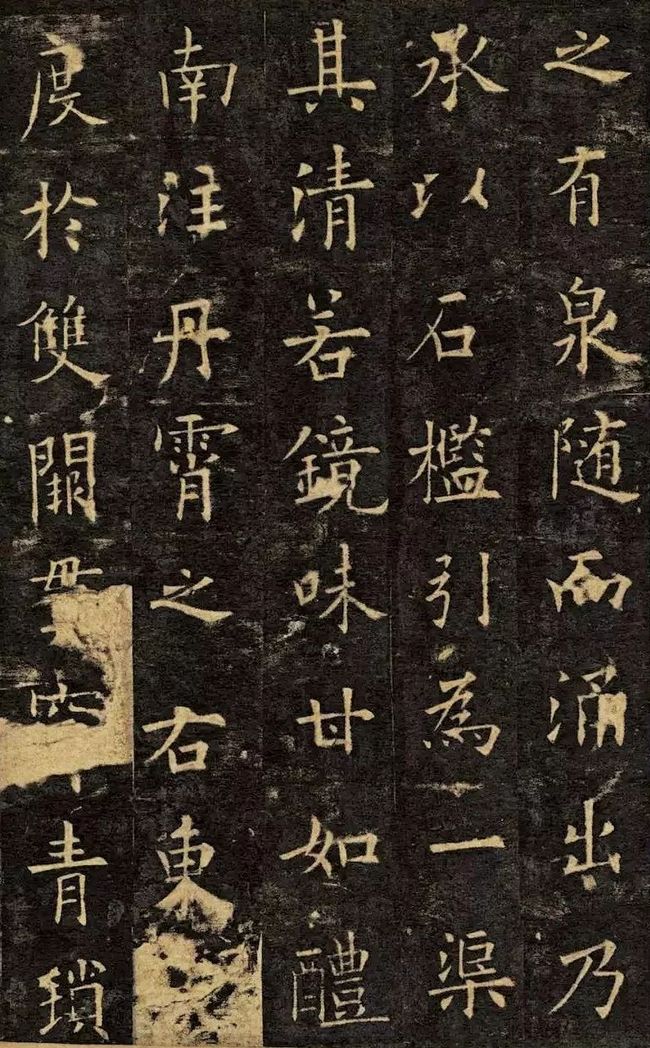 之有泉随而涌出乃
承以石檻引為一渠
其清若鏡味甘如醴
南注丹霄之右東
度於雙闕貫穿青瑣